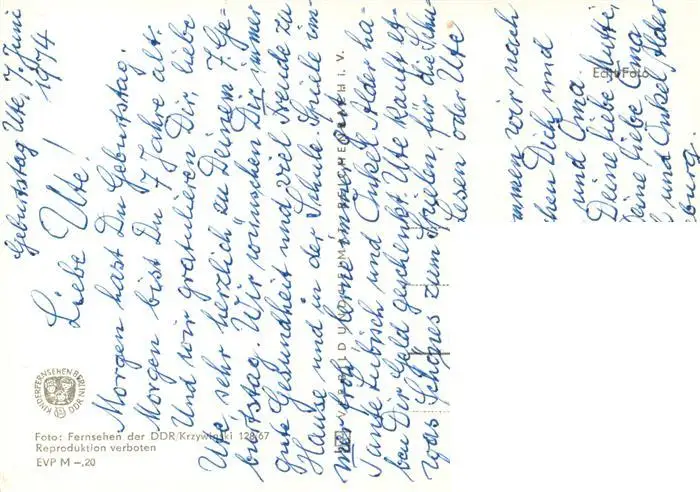 Geburtstag Ute, 7. Juni
1974
Liebe Ute!
Morgen hast Du Geburtstag.
Morgen bist Du 7 Jahre alt.
Und wir gratulieren Dir, liebe
Ute, sehr herzlich zu Deinem 7. Ge-
burtstag. Wir wünschen Dir immer
gute Gesundheit und viel Freude zu
Hause und in der Schule. Spiele im-
mer froh, lerne immer gut.
Tante Lubisch und Onkel Alder ha-
ben Dir Geld geschenkt. Ute kauft et-
was Schönes zum Spielen, für die Schu-
Lesen oder Ute
mmen wir nach
hen Dich und
und Oma.
Deine liebe Mutti,
Deine liebe Oma
und Onkel Alder
KINDERFERNSEHEN BERLIN
DDR
Foto: Fernsehen der DDR/Krzywinski 128/67
Reproduktion verboten
EVP M –,20
VERLAG BILD UND HEIMAT REICHENBACH i. V.
Echt Foto